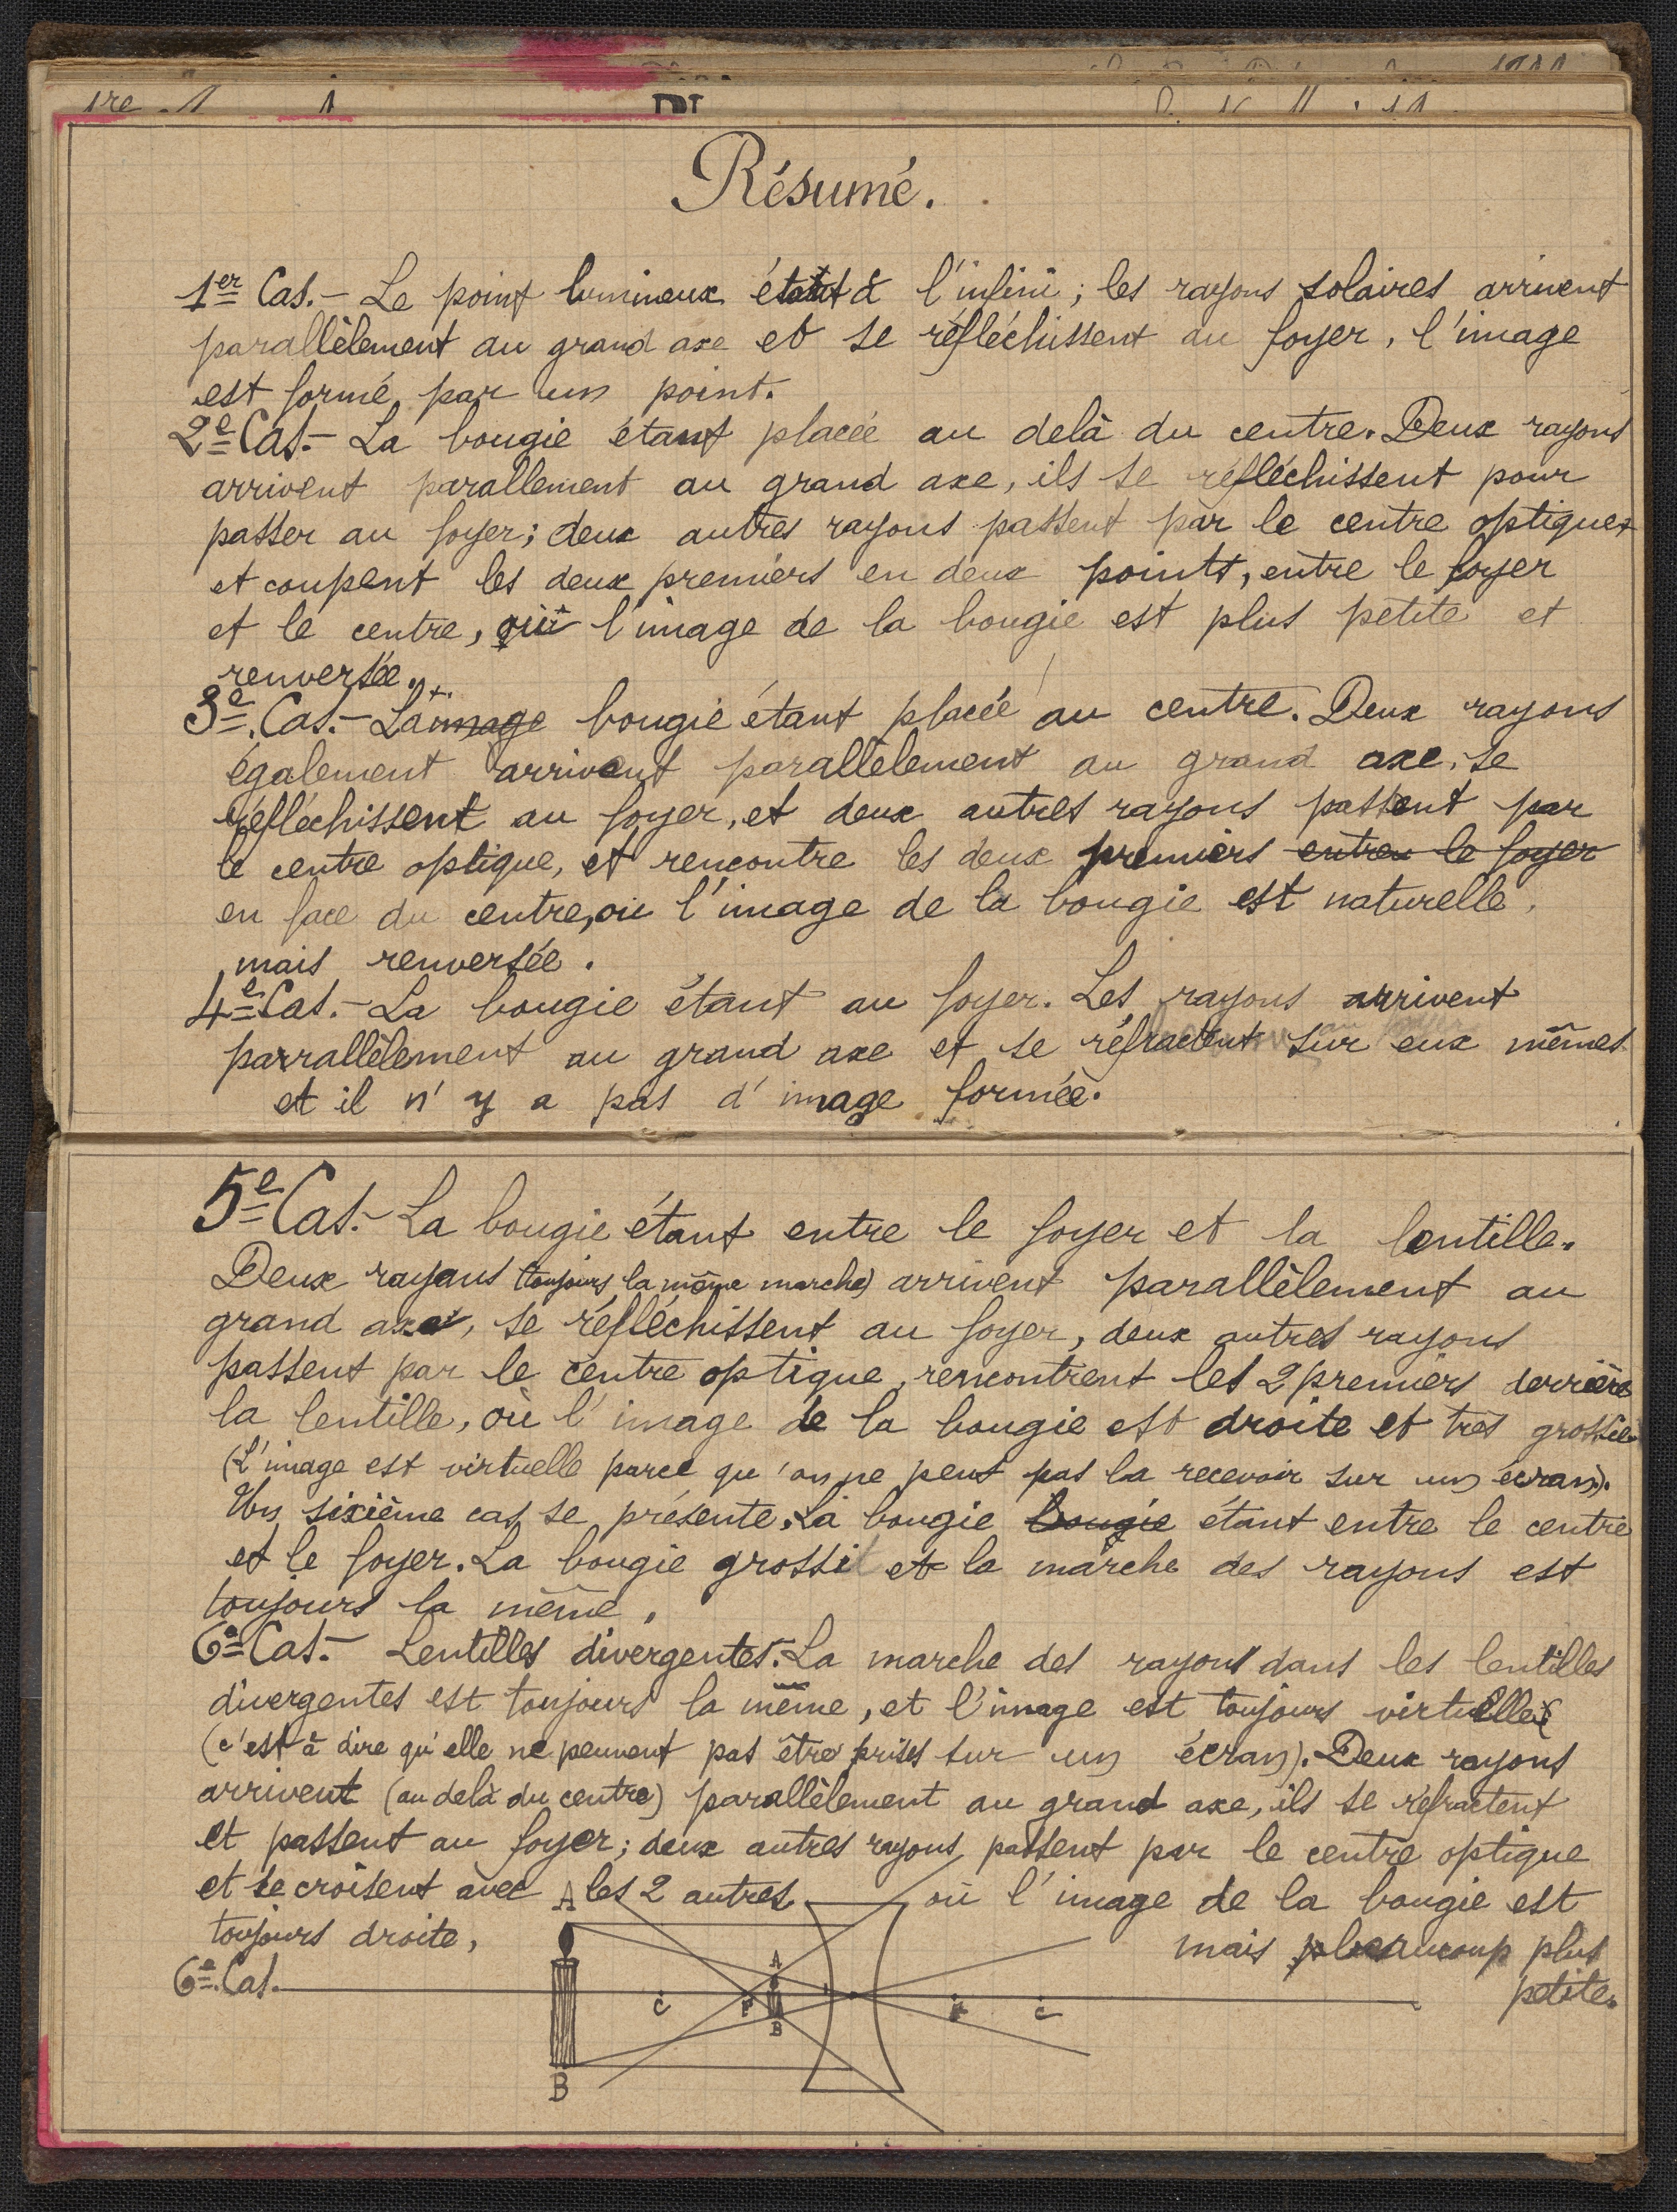 Résumé.
1er Cas.- Le point lumineux étant à l'infini ; les rayons solaires arrivent
parallèlement au grand axe et se réfléchissent au foyer, l'image
est formé par un point.
2e Cas.- La bougie étant placée au delà du centre. Deux rayons
arrivent parallement au grand axe, ils se réfléchissent pour
passer au foyer ; deux autres rayons passent par le centre optique
et coupent les deux premiers en deux points, entre le foyer
et le centre, où l'image de la bougie est plus petite et
renversée.
3e Cas.- La image bougie étant placée au centre. Deux rayons
également arrivent parallèlement au grand axe, se
réfléchissent au foyer, et deux autres rayons passent par
le centre optique, et rencontre les deux premiers entre le foyer
en face du centre, où l'image de la bougie est naturelle,
mais renversée.
4e Cas.- La bougie étant au foyer. Les rayons arrivent
parrallèlement au grand axe et se réfractent sur eux mêmes
et il n'y a pas d'image formée.
5e Cas.- La bougie étant entre le foyer et la lentille.
Deux rayons (toujours la même marche) arrivent parallèlement au
grand axe, se réfléchissent au foyer, deux autres rayons
passent par le centre optique, rencontrent les 2 premiers derrière
la lentille, où l'image de la bougie est droite et très grossie
(L'image est virtuelle parce qu'on ne peut pas la recevoir sur un écran).
Un sixième cas se présente. La bougie bougie étant entre le centre
et le foyer. La bougie grossit et la marche des rayons est
toujours la même.
6e Cas.- Lentilles divergentes. La marche des rayons dans les lentilles
divergentes est toujours la même, et l'image est toujours virtuelle
(c'est à dire qu'elle ne peuvent pas être prises sur un écran). Deux rayons
arrivent (au delà du centre) parallèlement au grand axe, ils se réfractent
et passent au foyer ; deux autres rayons passent par le centre optique
et se croisent avec les 2 autres où l'image de la bougie est
toujours droite, mais beaucoup plus
petite.
6e Cas.
A
A
C F F C
B
B